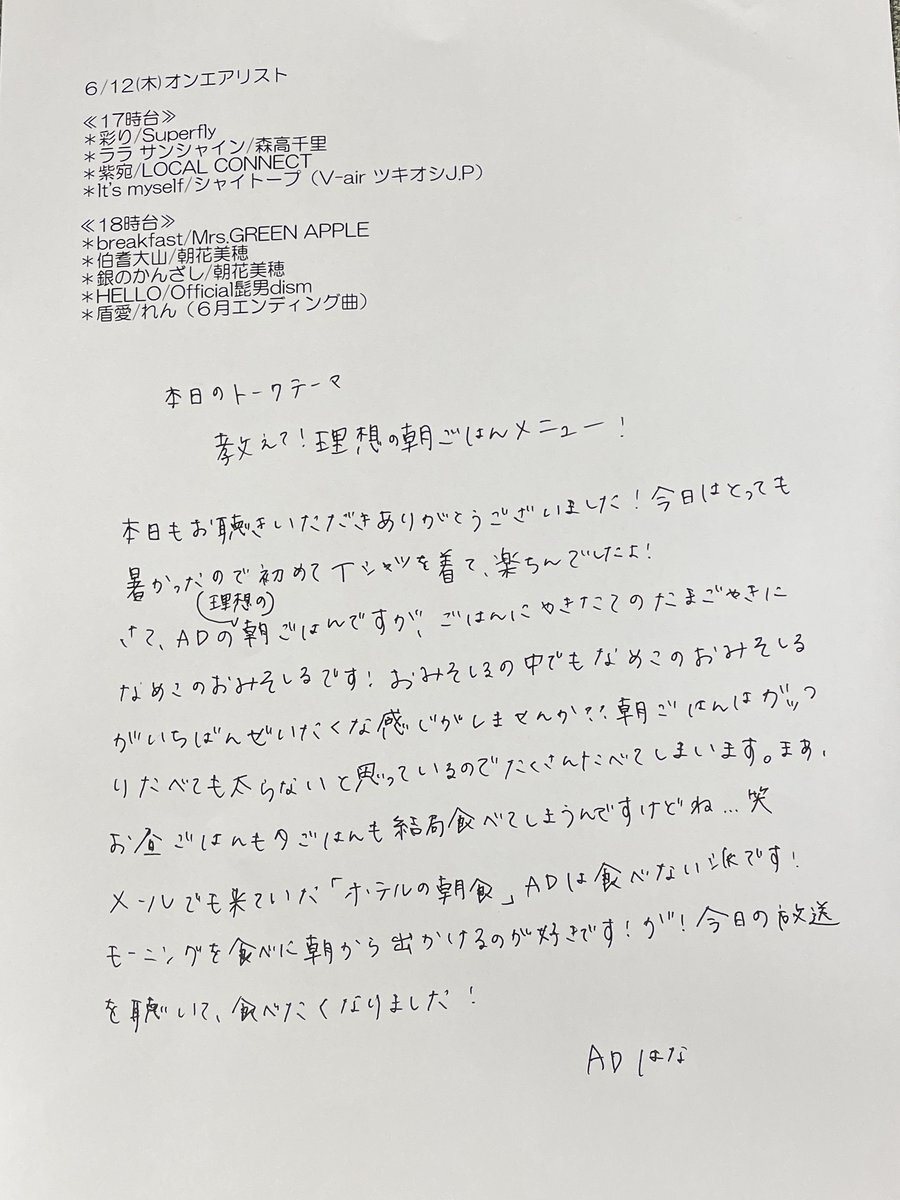 6/12(木)オンエアリスト
≪17時台≫
＊彩り/Superfly
＊ララ サンシャイン/森高千里
＊紫宛/LOCAL CONNECT
＊It's myself/シャイトープ（V-air ツキオシJ.P）
≪18時台≫
＊breakfast/Mrs.GREEN APPLE
＊伯耆大山/朝花美穂
＊銀のかんざし/朝花美穂
＊HELLO/Official髭男dism
＊盾愛/れん（６月エンディング曲）
本日のトークテーマ
教えて！理想の朝ごはんメニュー！
本日もお聴きいただきありがとうございました！今日はとっても
暑かったので初めてTシャツを着て、楽ちんでしたよ！
さて、ADの理想の朝ごはんですが、ごはんにやきたてのたまごやきに
なめこのおみそしるです！おみそしるの中でもなめこのおみそしる
がいちばんぜいたくな感じがしませんか??朝ごはんはガッつ
りたべても太らないと思っているのでたくさんたべてしまいます。まあ、
お昼ごはんも夕ごはんも結局食べてしまうんですけどね…笑
メールでも来ていた「ホテルの朝食」ADは食べない派です！
モーニングを食べに朝から出かけるのが好きです！が！今日の放送
を聴いて、食べたくなりました！
ADはな